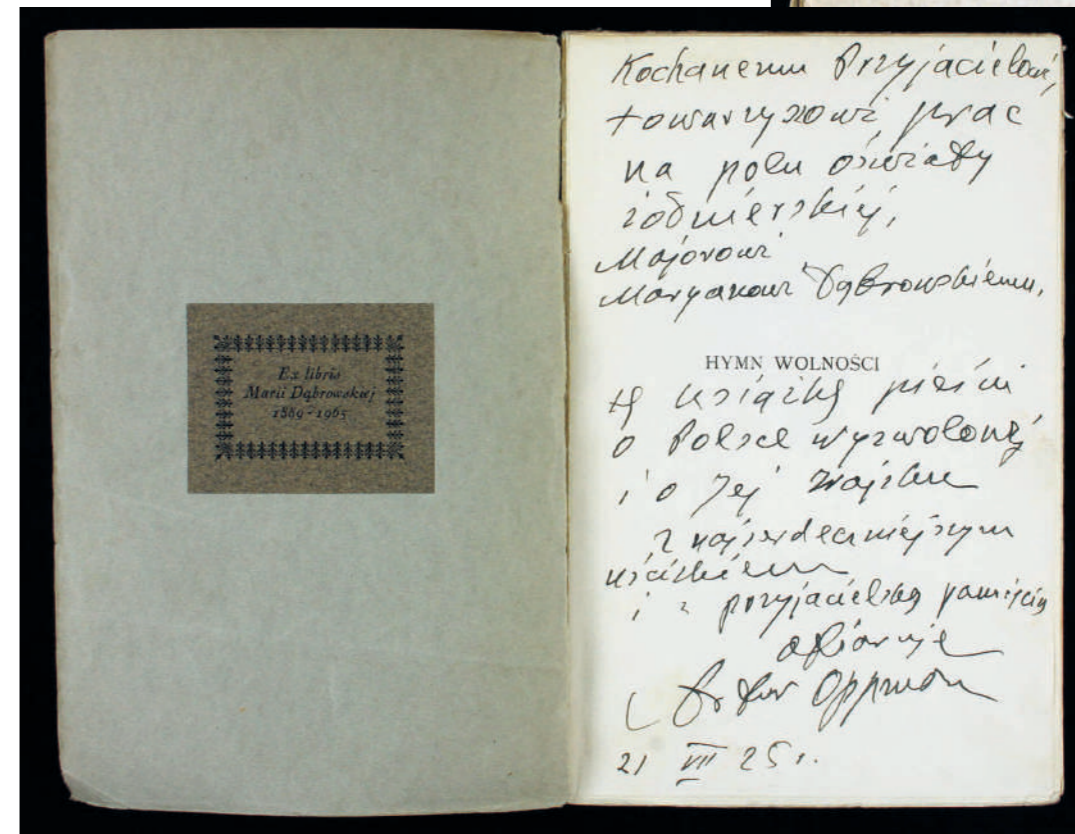 Ex libris
Marii Dąbrowskiej
1889-1965
Kochanemu Przyjacielowi,
towarzyszowi prac
na polu oświaty
żołnierskiej,
Majorowi
Maryanowi Dąbrowskiemu,
HYMN WOLNOŚCI
tę książkę pieśni
o Polsce wyzwolonej
i o Jej Wojsku
z najserdeczniejszym
uściskiem
i z przyjacielską pamięcią
ofiaruje
Artur Oppman
21 VII 25 r.